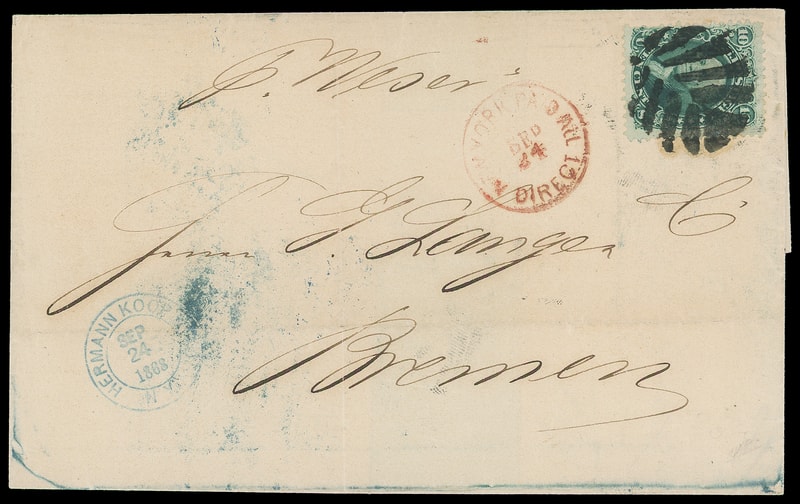 p. Weser
NEW YORK PAID ALL
SEP
24
DIRECT
10
Herrn F G Lange
Bremen
HERMANN KOOP
SEP
24
1868
N.Y.